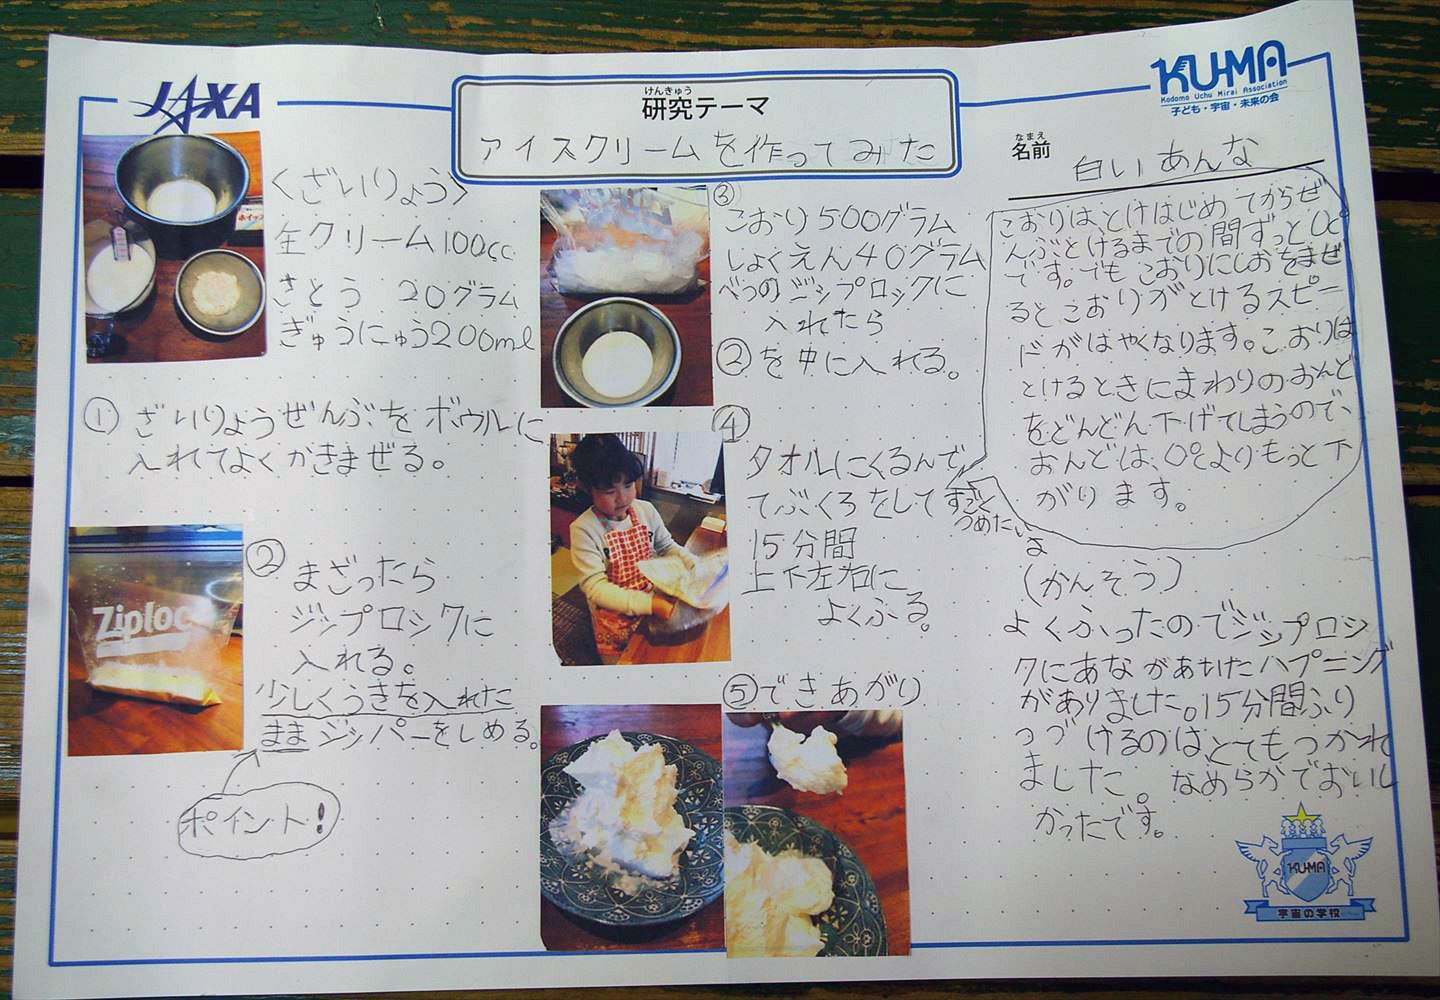 JAXA
けんきゅう
研究テーマ
アイスクリームを作ってみた
KU-MA
Kodomo Uchu Mirai Association
子ども・宇宙・未来の会
なまえ
名前
白いあんな
〈ざいりょう〉
生クリーム100cc
さとう 20グラム
ぎゅうにゅう200ml
ホイップ
①ざいりょうぜんぶをボウルに
入れてよくかきまぜる。
Ziploc
②まざったら
ジップロックに
入れる。
少しくうきを入れた
ままジッパーをしめる。
ポイント!
③
こおり500グラム
しょくえん40グラム
べつのジップロックに
入れたら
②を中に入れる。
④
タオルにくるんで
てぶくろをして
すごく
つめたいよ
15分間
上下左右に
よくふる。
⑤できあがり
こおりは、とけはじめてからぜ
んぶとけるまでの間ずっと0℃
です。でもこおりにしおをまぜ
るとこおりがとけるスピー
ドがはやくなります。こおりは
とけるときにまわりのおんど
をどんどん下げてしまうので、
おんどは、0℃よりもっと下
がります。
(かんそう)
よくふったのでジップロッ
クにあながあいたハプニング
がありました。15分間ふり
つづけるのは、とてもつかれ
ました。なめらかでおいし
かったです。
KU-MA
宇宙の学校